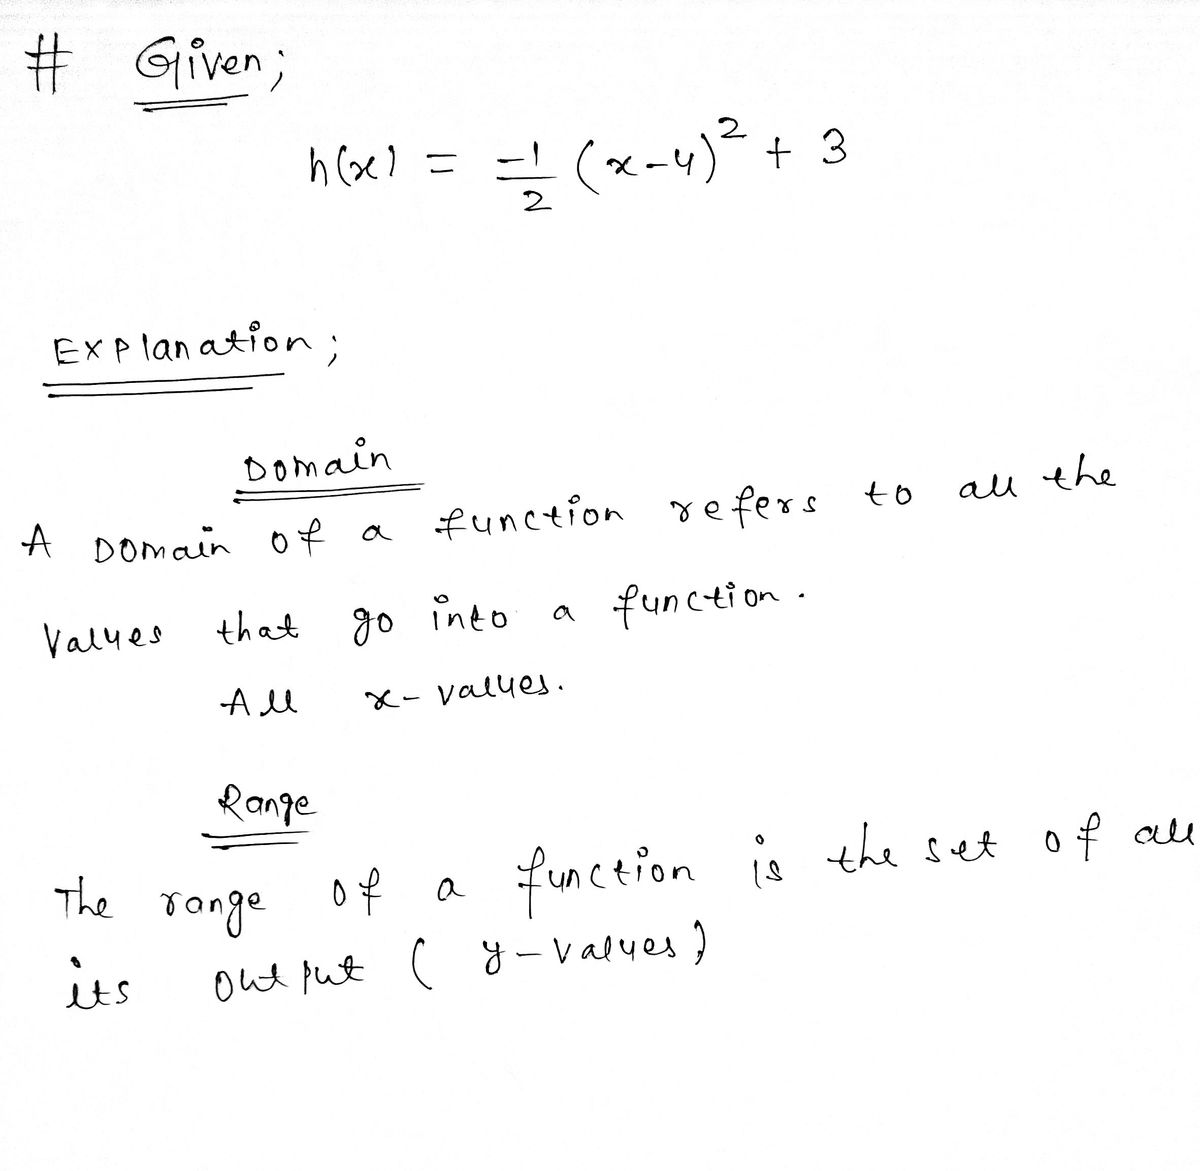 # Given;
h(x) = -1/2 (x-4)² + 3
Explanation;
Domain
A Domain of a function refers to all the
Values that go into a function.
All x-values.
Range
The range of a function is the set of all
its output ( y-values)